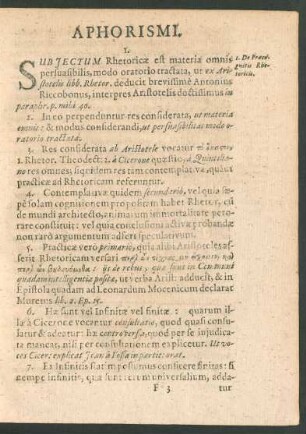 APHORISMI.
I.
SUBJECTUM Rhetoricæ est materia omnis
persuasibilis, modo oratorio tractata, ut ex Ari-
stotelis libb. Rhetor. deducit brevissimè Antonius
Riccobonus, interpres Aristotelis doctissimus in
paraphr. p. mihi 40.
1. De Præco-
gnitis Rhe-
toricis.
2. In eo perpenduntur res considerata, ut materia
omnis: & modus considerandi, ut persuasibilitas modo o-
ratorio tractata.
3. Res considerata ab Aristotele vocatur
1. Rhetor. Theodect: à Cicerone quæstio, à Quintiliano
res omnes; siquidem res tàm contemplativæ, quàm
practicæ ad Rhetoricam referuntur.
4. Contemplativæ quidem secundariò, vel quia ip-
sè solam cognitionem propositam habet Rhetor, cùm
de mundi architecto, animarum immortalitate pero-
rare constituit: vel quia conclusioni activæ probandæ
non rarò argumentum adfert speculativum.
5. Practicæ verò primariò, quia alibi Aristoteles as-
serit Rhetoricam versari
in iis de rebus, quæ sunt in Communi
quadam intelligentia posita, ut verba Arist: adduxit, & in
Epistola quadam ad Leonardum Mocenicum declarat
Muretus lib. 2. Ep. 15.
6. Hæ sunt vel Infinitæ vel finitæ: quarum illa
à Cicerone vocatur consultatio, quod quasi consu-
latur & edoceat: hæc controversia, quod per se injudica-
ta mancas, nisi per consultationem explicetur. Ut vo-
ces Cicer: explicat Jean à Fossa in partit: orat.
7. Ex Infinitis statim possumus conficere finitas: si
nempe infinitis, quæ sunt rei universalium, adda-
F 3 tur